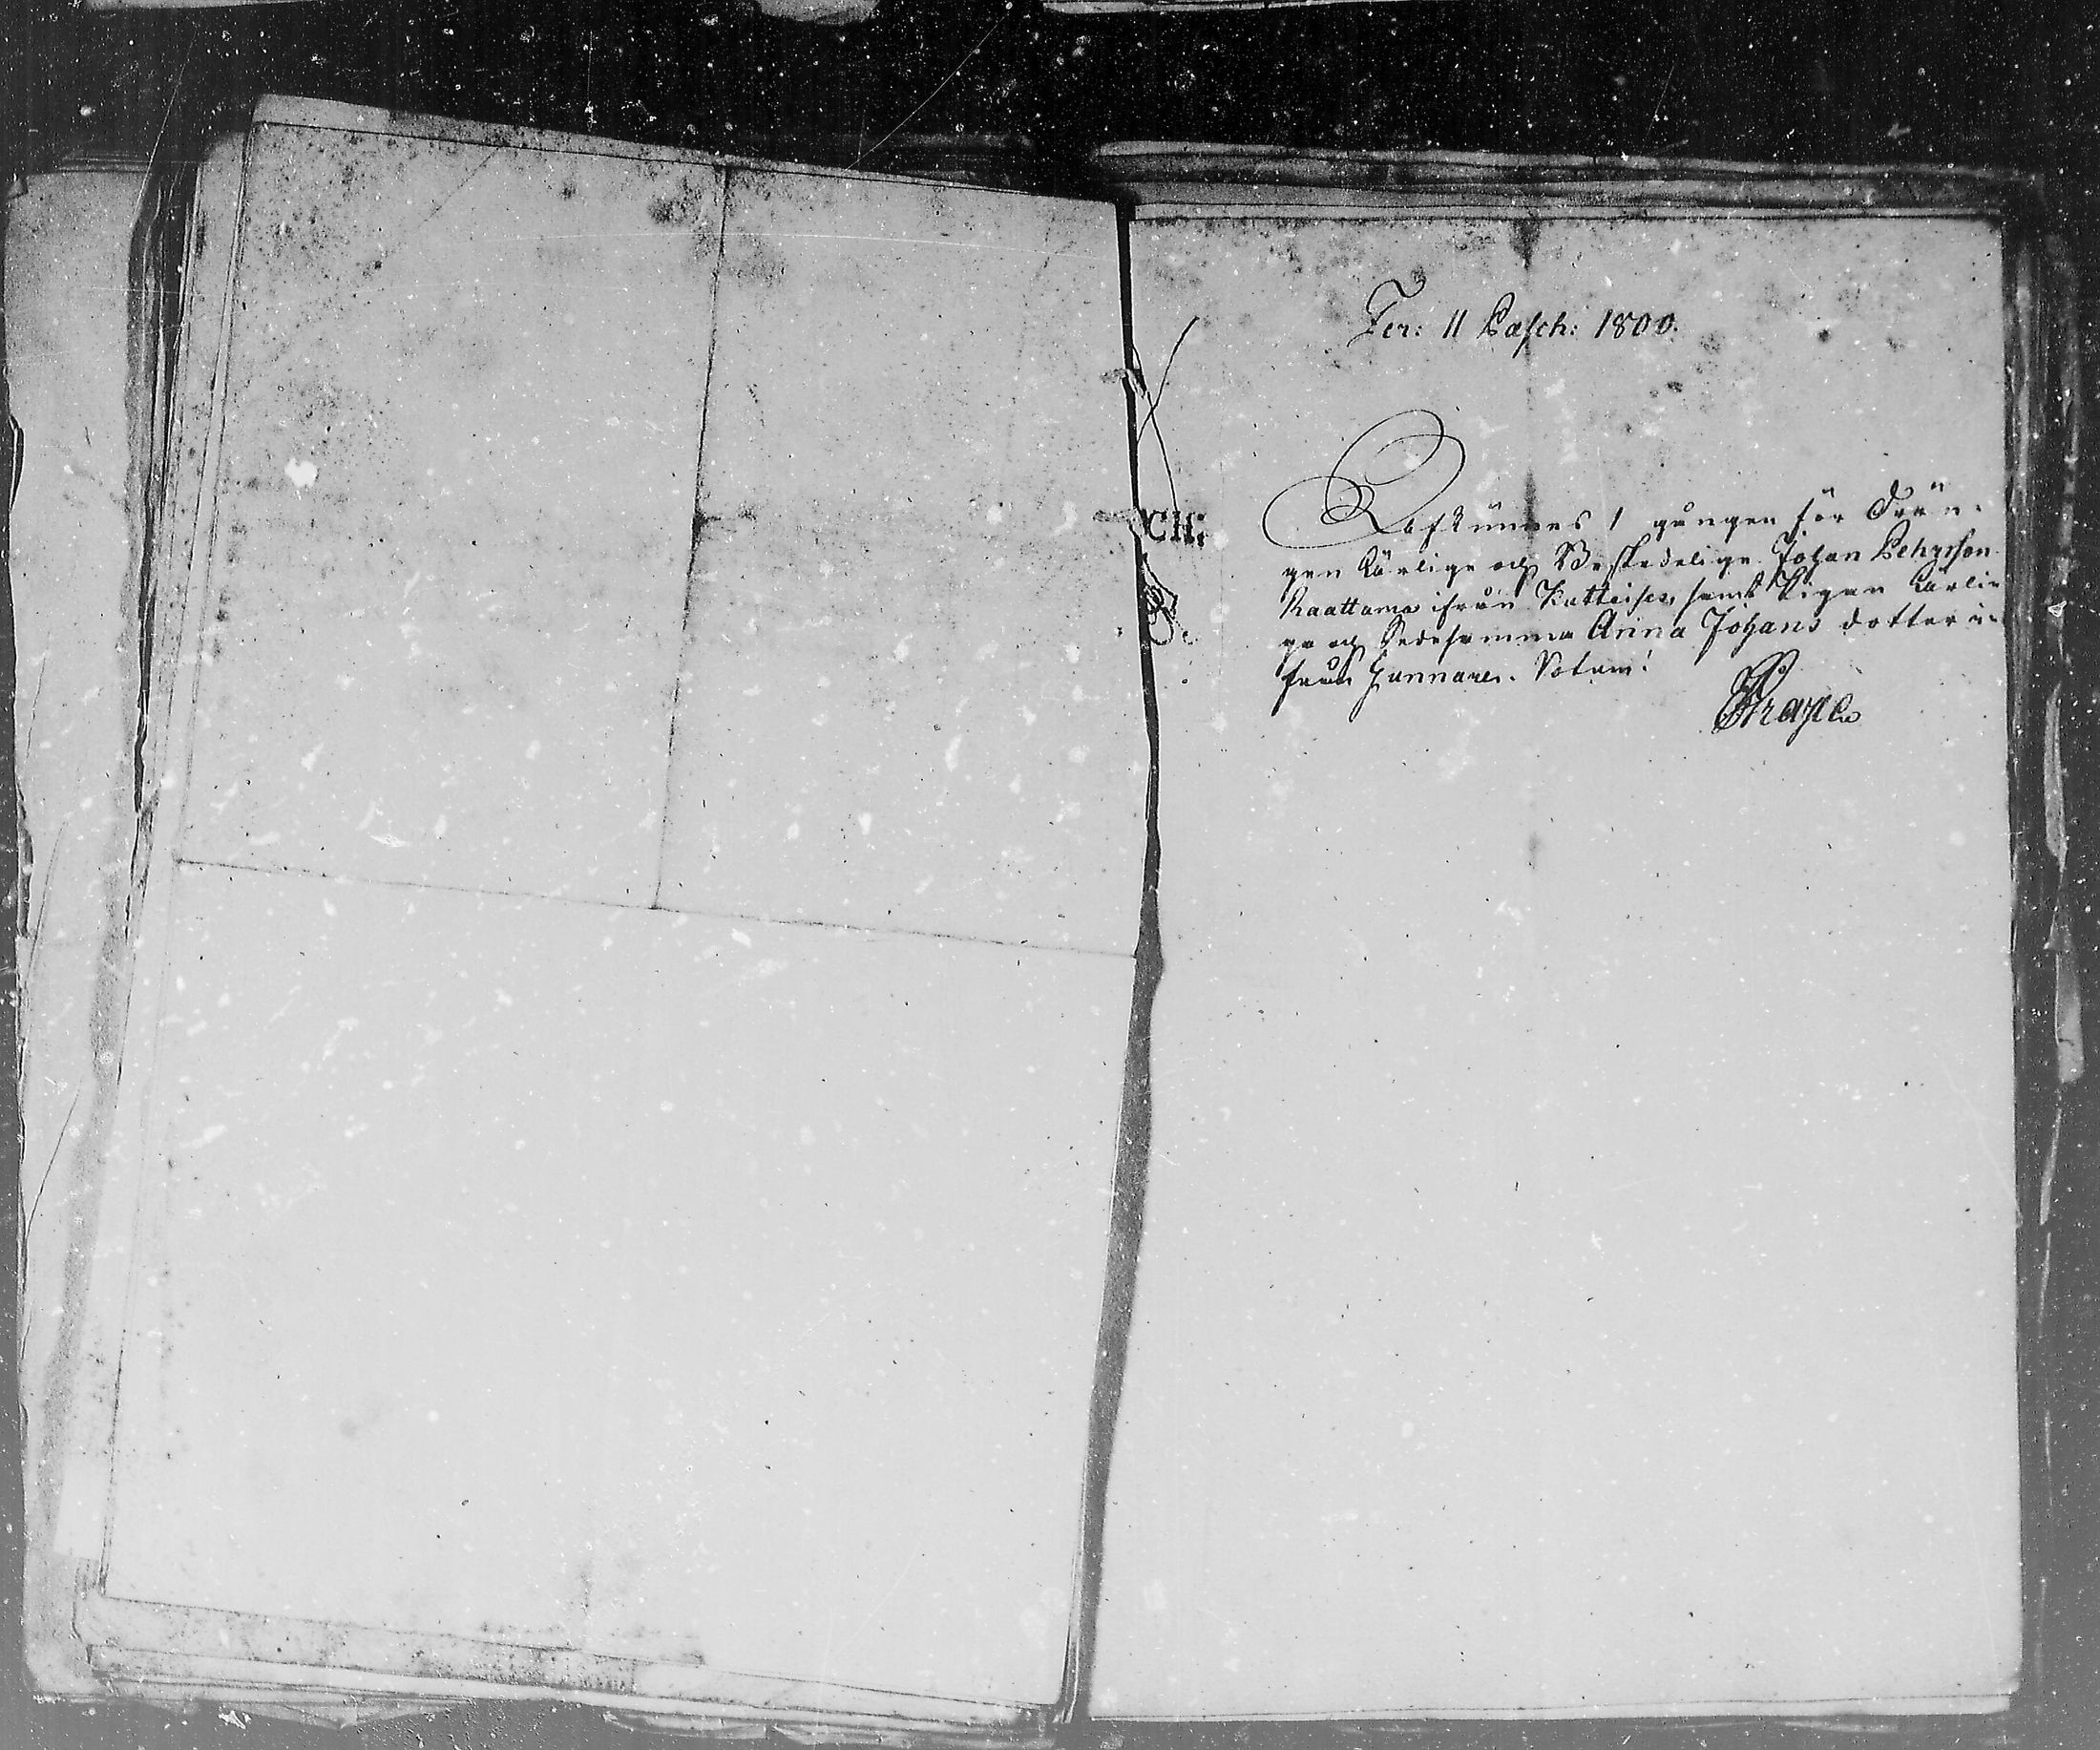 Fer: II Pasch: 1800.
CH:
Afkunnes 1 gången för Drän-
gen Ärlige och Beskedelige Johan Pehrsson
Raattama ifrån Kutteisen samt Pigan Ärli-
ga och Sedesamma Anna Johans dotter i-
från Gunnare. Notum!